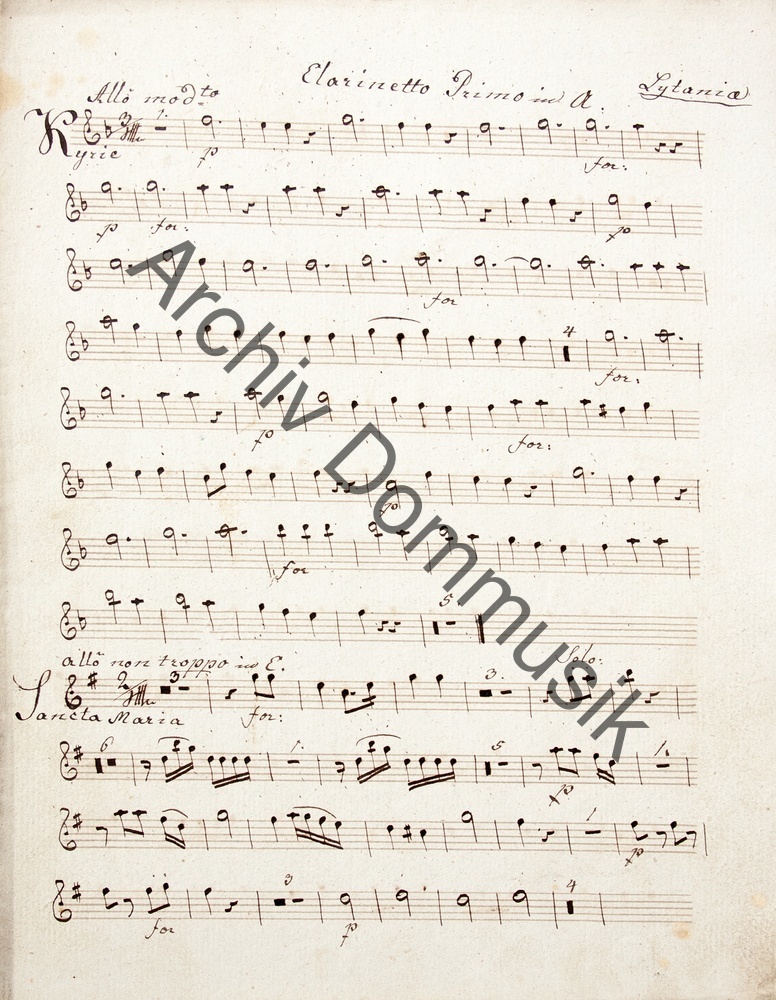 Clarinetto Primo in A.
Lytaniæ
Allo modto
3 1.
Kyrie p for:
p for: p
for
4
for:
p for:
p
for
5
allo non troppo in E. Solo:
2 3 3. 1
Sancta Maria for:
6 1. 5 1.
p
1
p
3 4
for p
Archiv Dommusik